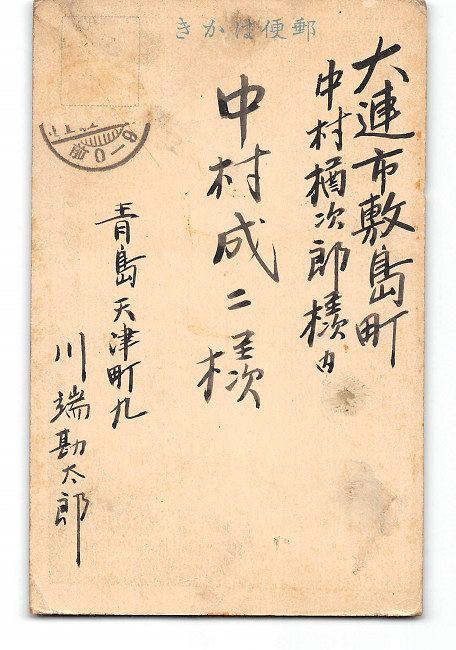 きかは便郵
大連市敷島町
中村楢次郎様内
中村成二様
青島天津町九
川端勘太郎
前0-9